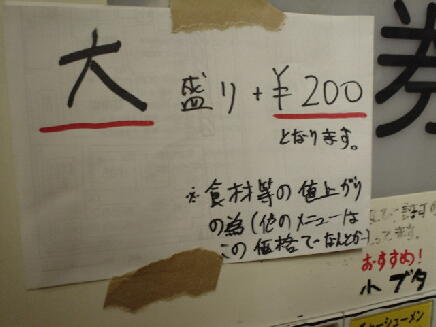 大 盛り+¥200
となります。
※食材等の値上がり
の為(他のメニューは
この価格でなんとかー)
券
おすすめ!
小ブタ
チャーシューメン